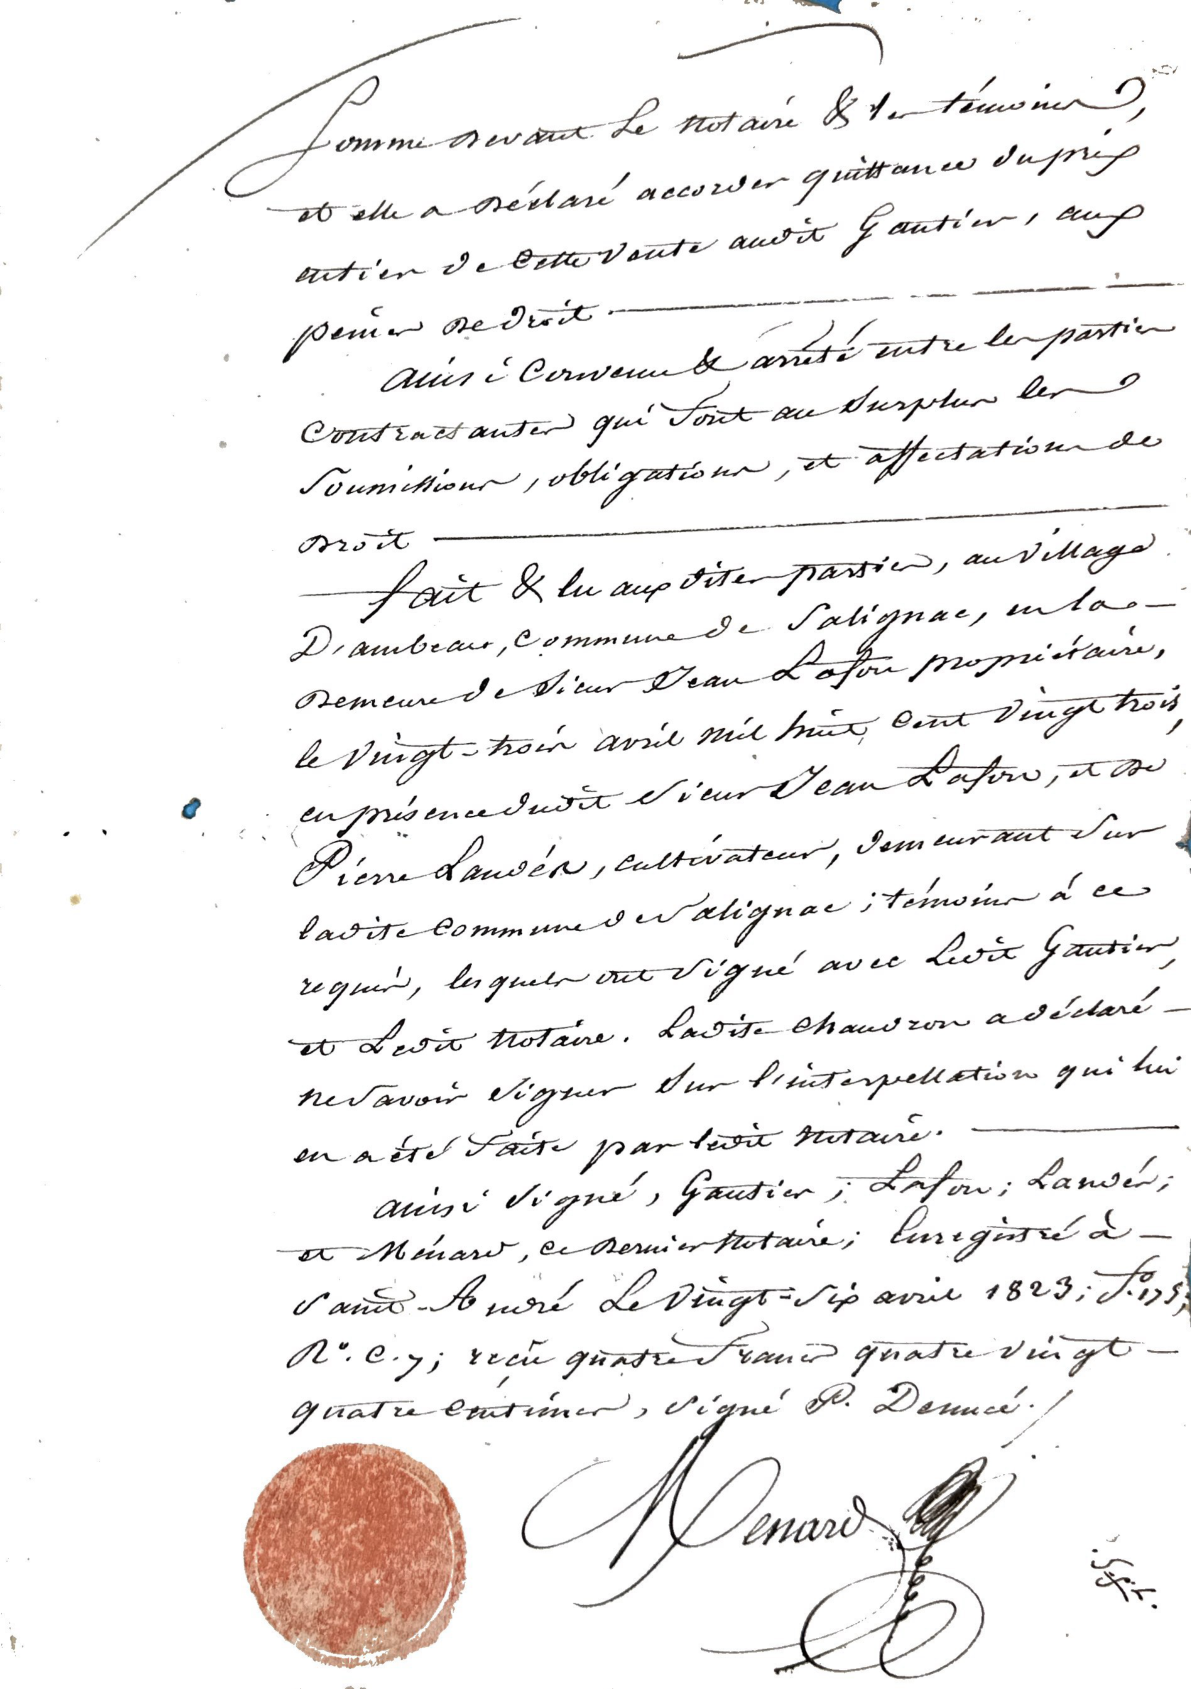 Somme devant le notaire & les témoins,
et elle a déclaré accorder quittance du prix
entier de cette vente audit Gautier, aux
peines de droit
ainsi convenu & arrêté entre les parties
contractantes qui font au surplus les
soumissions, obligations, et affectations de
droit
fait & lu aux dites parties, au village
D'ambeaux, commune de Salignac, en la
demeure de sieur Jean Lafon propriétaire,
le vingt-trois avril mil huit cent vingt trois,
en présence dudit sieur Jean Lafon, et de
Pierre Landés, cultivateur, demeurant sur
ladite commune de Salignac ; témoins à ce
requis, lesquels ont signé avec Ledit Gautier,
et Ledit Notaire. Ladite Chaudron a déclaré
ne savoir signer sur l'interpellation qui lui
en a été faite par ledit notaire.
ainsi signé, Gautier ; Lafon ; Landés ;
et Ménard, ce dernier Notaire ; Enregistré à
saint-André Le vingt-six avril 1823 ; f.o 175,
R.o C. 7 ; reçu quatre francs quatre vingt
quatre centimes, signé P. Denucé.
Menard